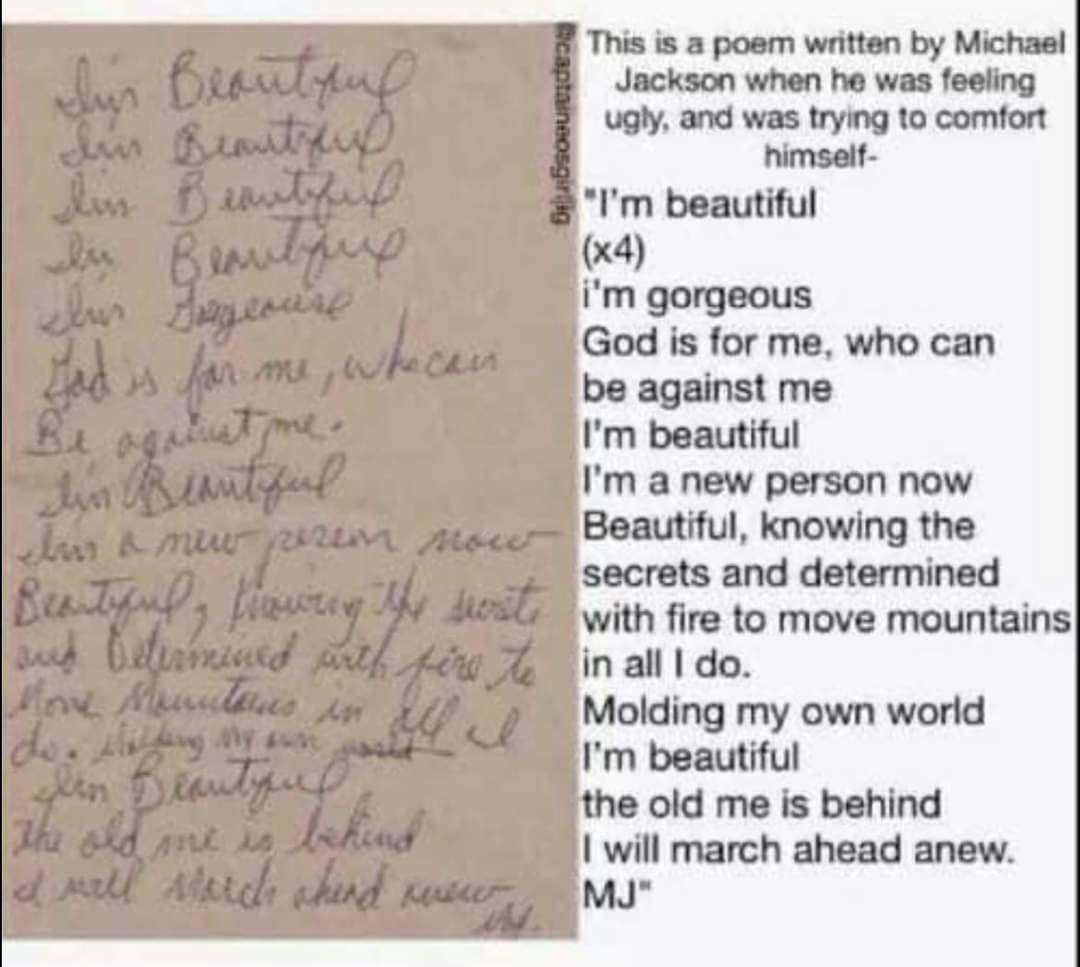 I'm Beautiful
I'm Beautiful
I'm Beautiful
I'm Beautiful
I'm Gorgeouse
God is for me, who can
Be against me.
I'm Beautiful
I'm a new person now
Beautiful, knowing the secrets
and Determined with fire to
Move Mountains in all I
do. Molding my own world
I'm Beautiful
The old me is behind
I will March ahead anew
MJ.
@captaineosgirljg
This is a poem written by Michael
Jackson when he was feeling
ugly, and was trying to comfort
himself-
"I'm beautiful
(x4)
i'm gorgeous
God is for me, who can
be against me
I'm beautiful
I'm a new person now
Beautiful, knowing the
secrets and determined
with fire to move mountains
in all I do.
Molding my own world
I'm beautiful
the old me is behind
I will march ahead anew.
MJ"